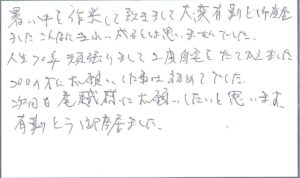 暑い中を作業して頂きまして大変有難と御座居
ました こんなに きれい 成るとは思いませんでした。
人生70年 頑張りまして2度目をたてかえました
コロナ に お願いした事は初めてでした。
次回も 是職様にお願いしたいと思います。
有難とう御座居ました。